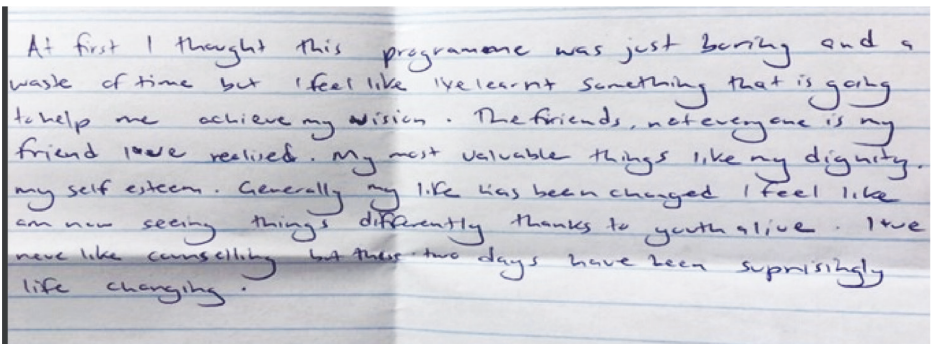 At first I thought this programme was just boring and a
waste of time but I feel like I've learnt something that is going
to help me achieve my vision. The friends, not everyone is my
friend I've realised. My most valuable things like my dignity.
my self esteem. Generally my life has been changed I feel like
am now seeing things differently thanks to youth alive. I've
neve like counselling but these two days have been suprisingly
life changing.